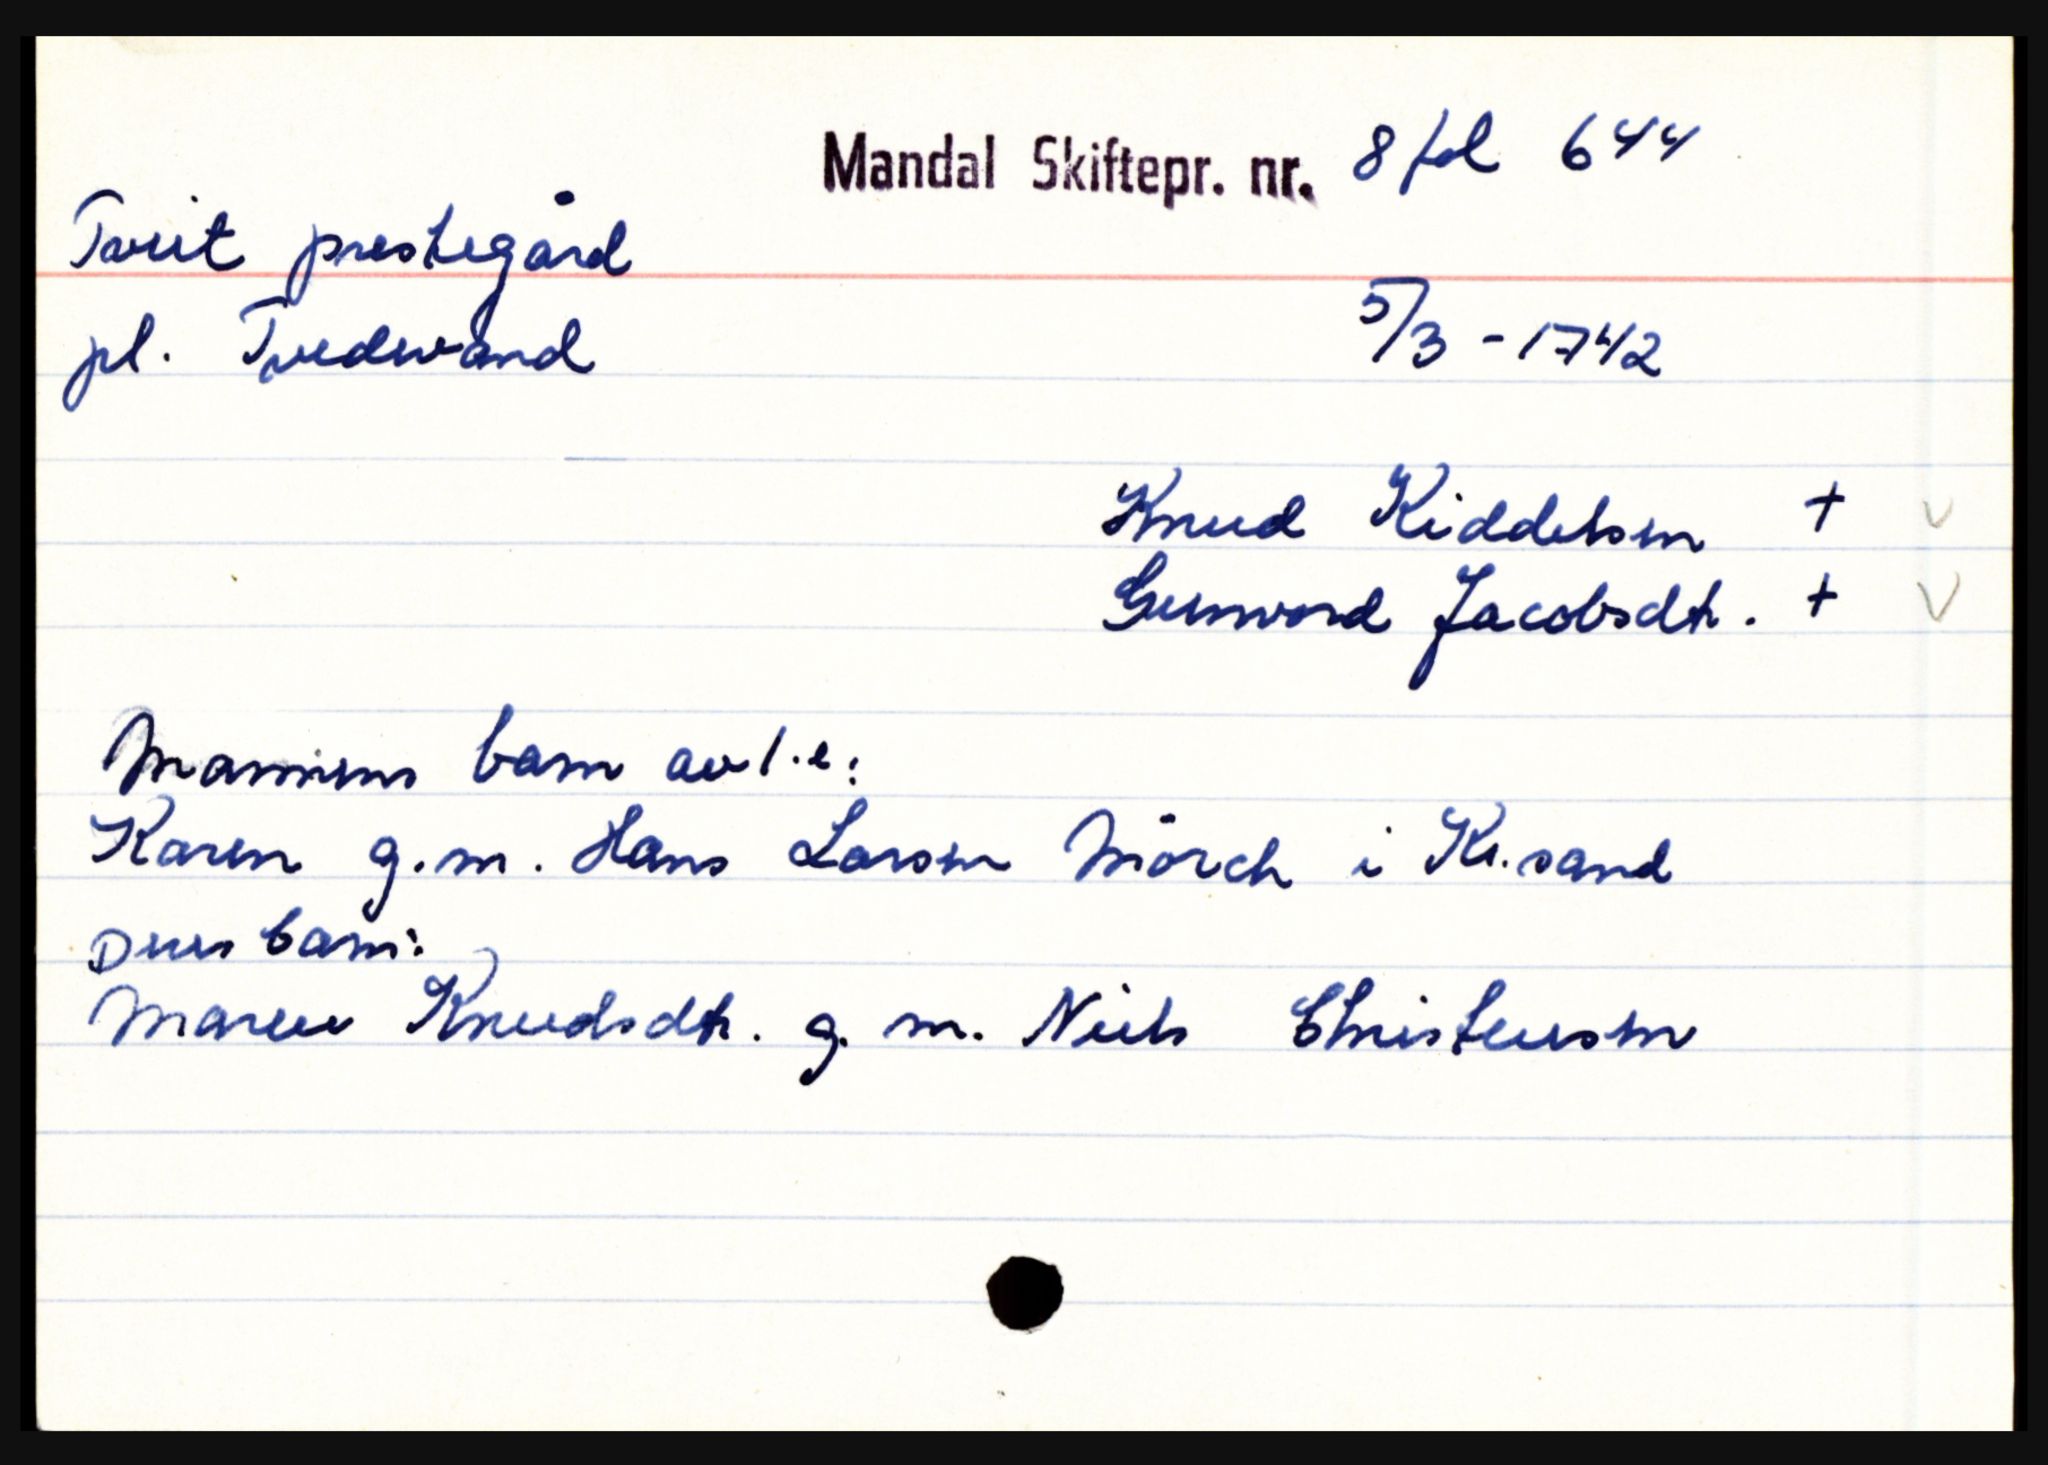 Mandal Skiftepr. nr. 8 fol 644
Tveit prestegård
pl. Tvedevand
5/3 - 1742
Knud Kiddelsen + v
Gunvord Jacobsdtr. + v
Mannens barn av 1.e:
Karen g.m. Hans Larsen Mörch i Kr.sand
Deres barn:
Maren Knudsdtr. g. m. Niels Christensen